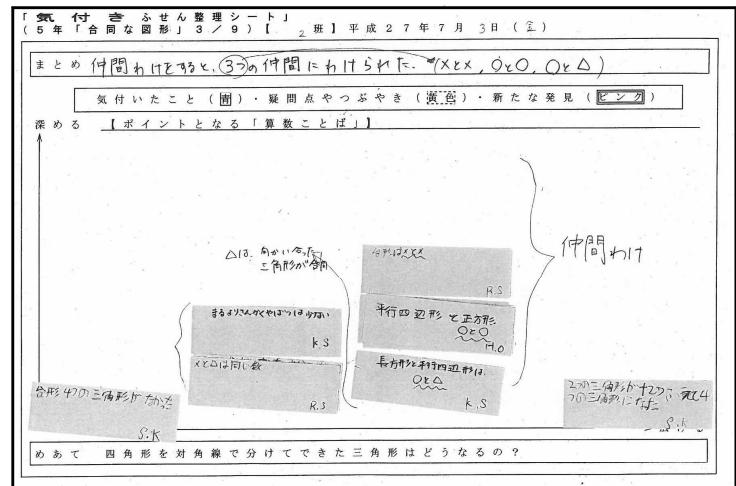 「気付きふせん整理シート」
(5年「合同な図形」3/9)【 2 班】平成27年7月3日(金)
まとめ 仲間わけをすると、3つの仲間にわけられた。(×と×,○と○,○と△)
気付いたこと(青)・疑問点やつぶやき(黄色)・新たな発見(ピンク)
深める 【ポイントとなる「算数ことば」】
仲間わけ
△は、向かい合った
三角形が合同
台形は×と×
R.S
まるよりさんかくやばつは少ない
K.S
平行四辺形と正方形
○と○
H.O
×と△は同じ数
R.S
長方形と平行四辺形は、
○と△
K.S
台形4つの三角形が
S.K
2つの三角形が
4
つの三角形になった
S.K
めあて 四角形を対角線で分けてできた三角形はどうなるの?